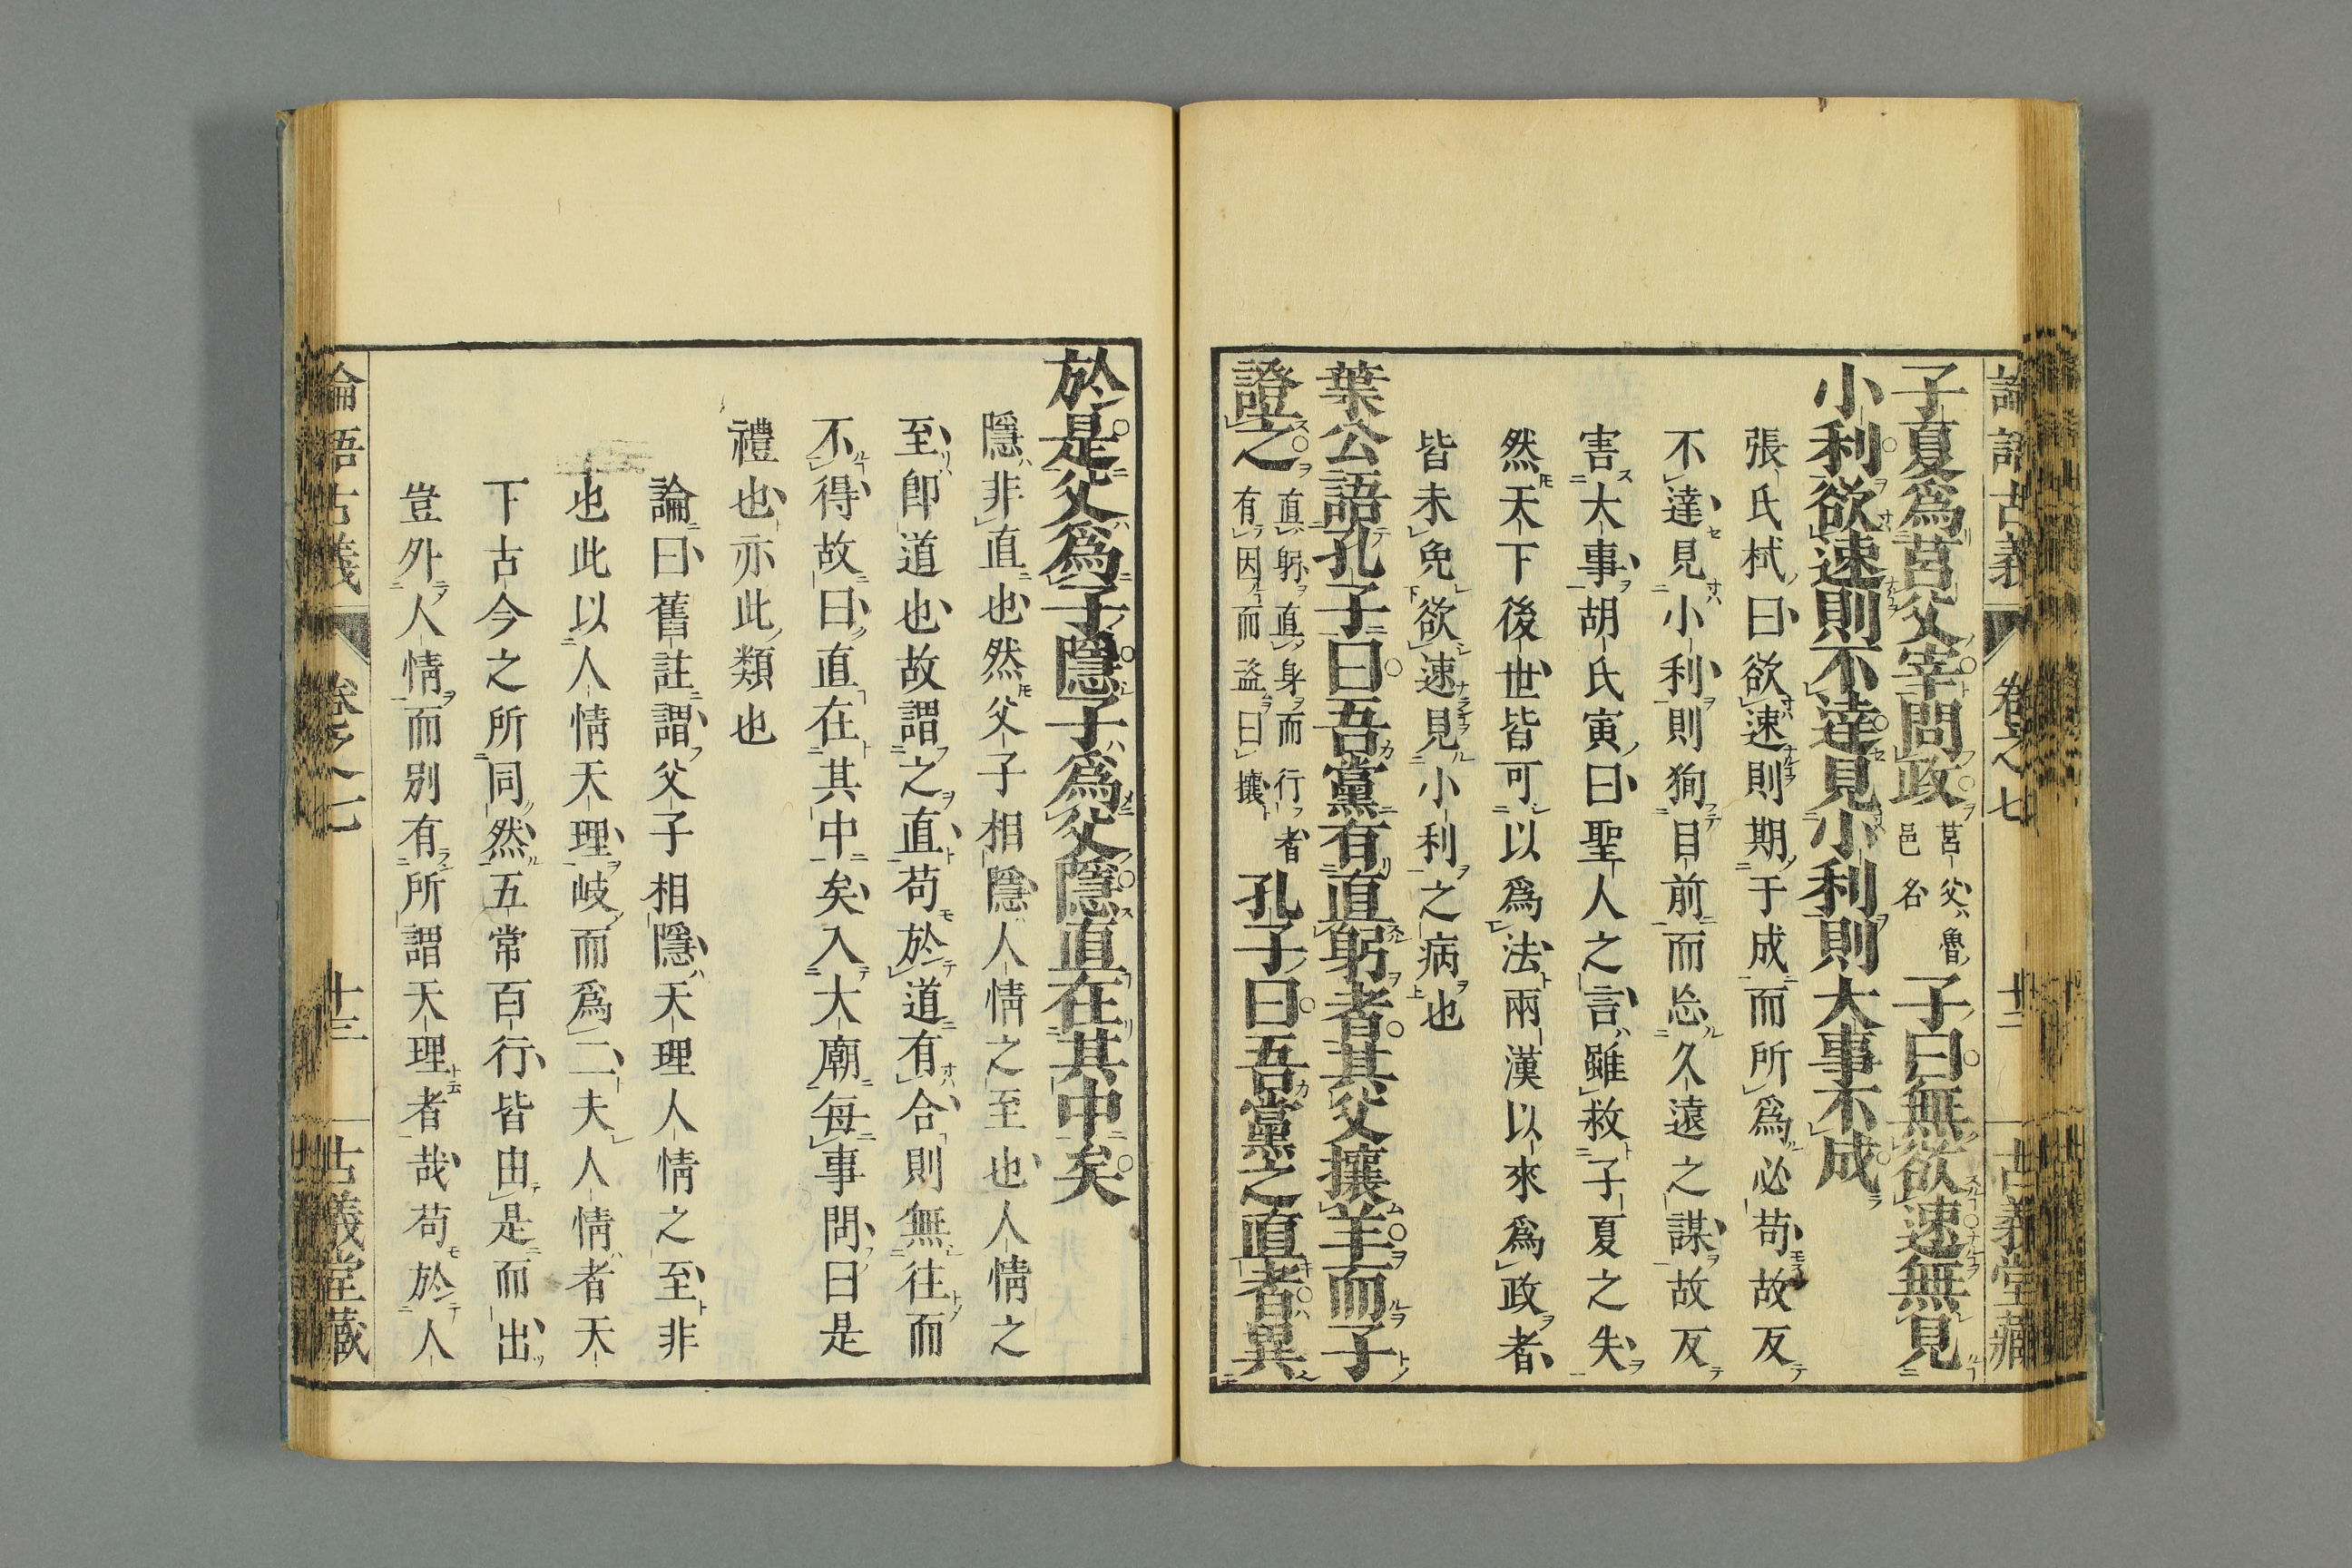 論語古義 卷之七 十二 古義堂藏
子夏爲莒父宰問政莒父魯邑名子曰無欲速無見
小利欲速則不達見小利則大事不成
張氏栻曰欲速則期于成而所爲必苟故反
不達見小利則狥目前而忘久遠之謀故反
害大事胡氏寅曰聖人之言雖救子夏之失
然天下後世皆可以爲法兩漢以來爲政者
皆未免欲速見小利之病也
葉公語孔子曰吾黨有直躬者其父攘羊而子
證之直躬直身而行者有因而盜曰攘孔子曰吾黨之直者異
於是父爲子隱子爲父隱直在其中矣
隱非直也然父子相隱人情之至也人情之
至卽道也故謂之直苟於道有合則無往而
不得故曰直在其中矣入大廟每事問曰是
禮也亦此類也
論曰舊註謂父子相隱天理人情之至非
也此以人情天理岐而爲二夫人情者天
下古今之所同然五常百行皆由是而出
豈外人情而別有所謂天理者哉苟於人
論語古義 卷之七 十三 古義堂藏